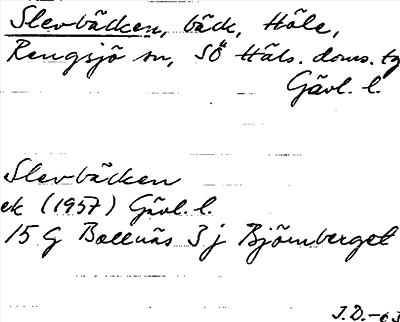 Slevbäcken, bäck, Höle,
Rengsjö sn, SÖ Häls. doms. tg
Gävl. l.
Slevbäcken
ek (1957) Gävl. l.
15 G Bollnäs 3 j Björnberget
J.D.-63